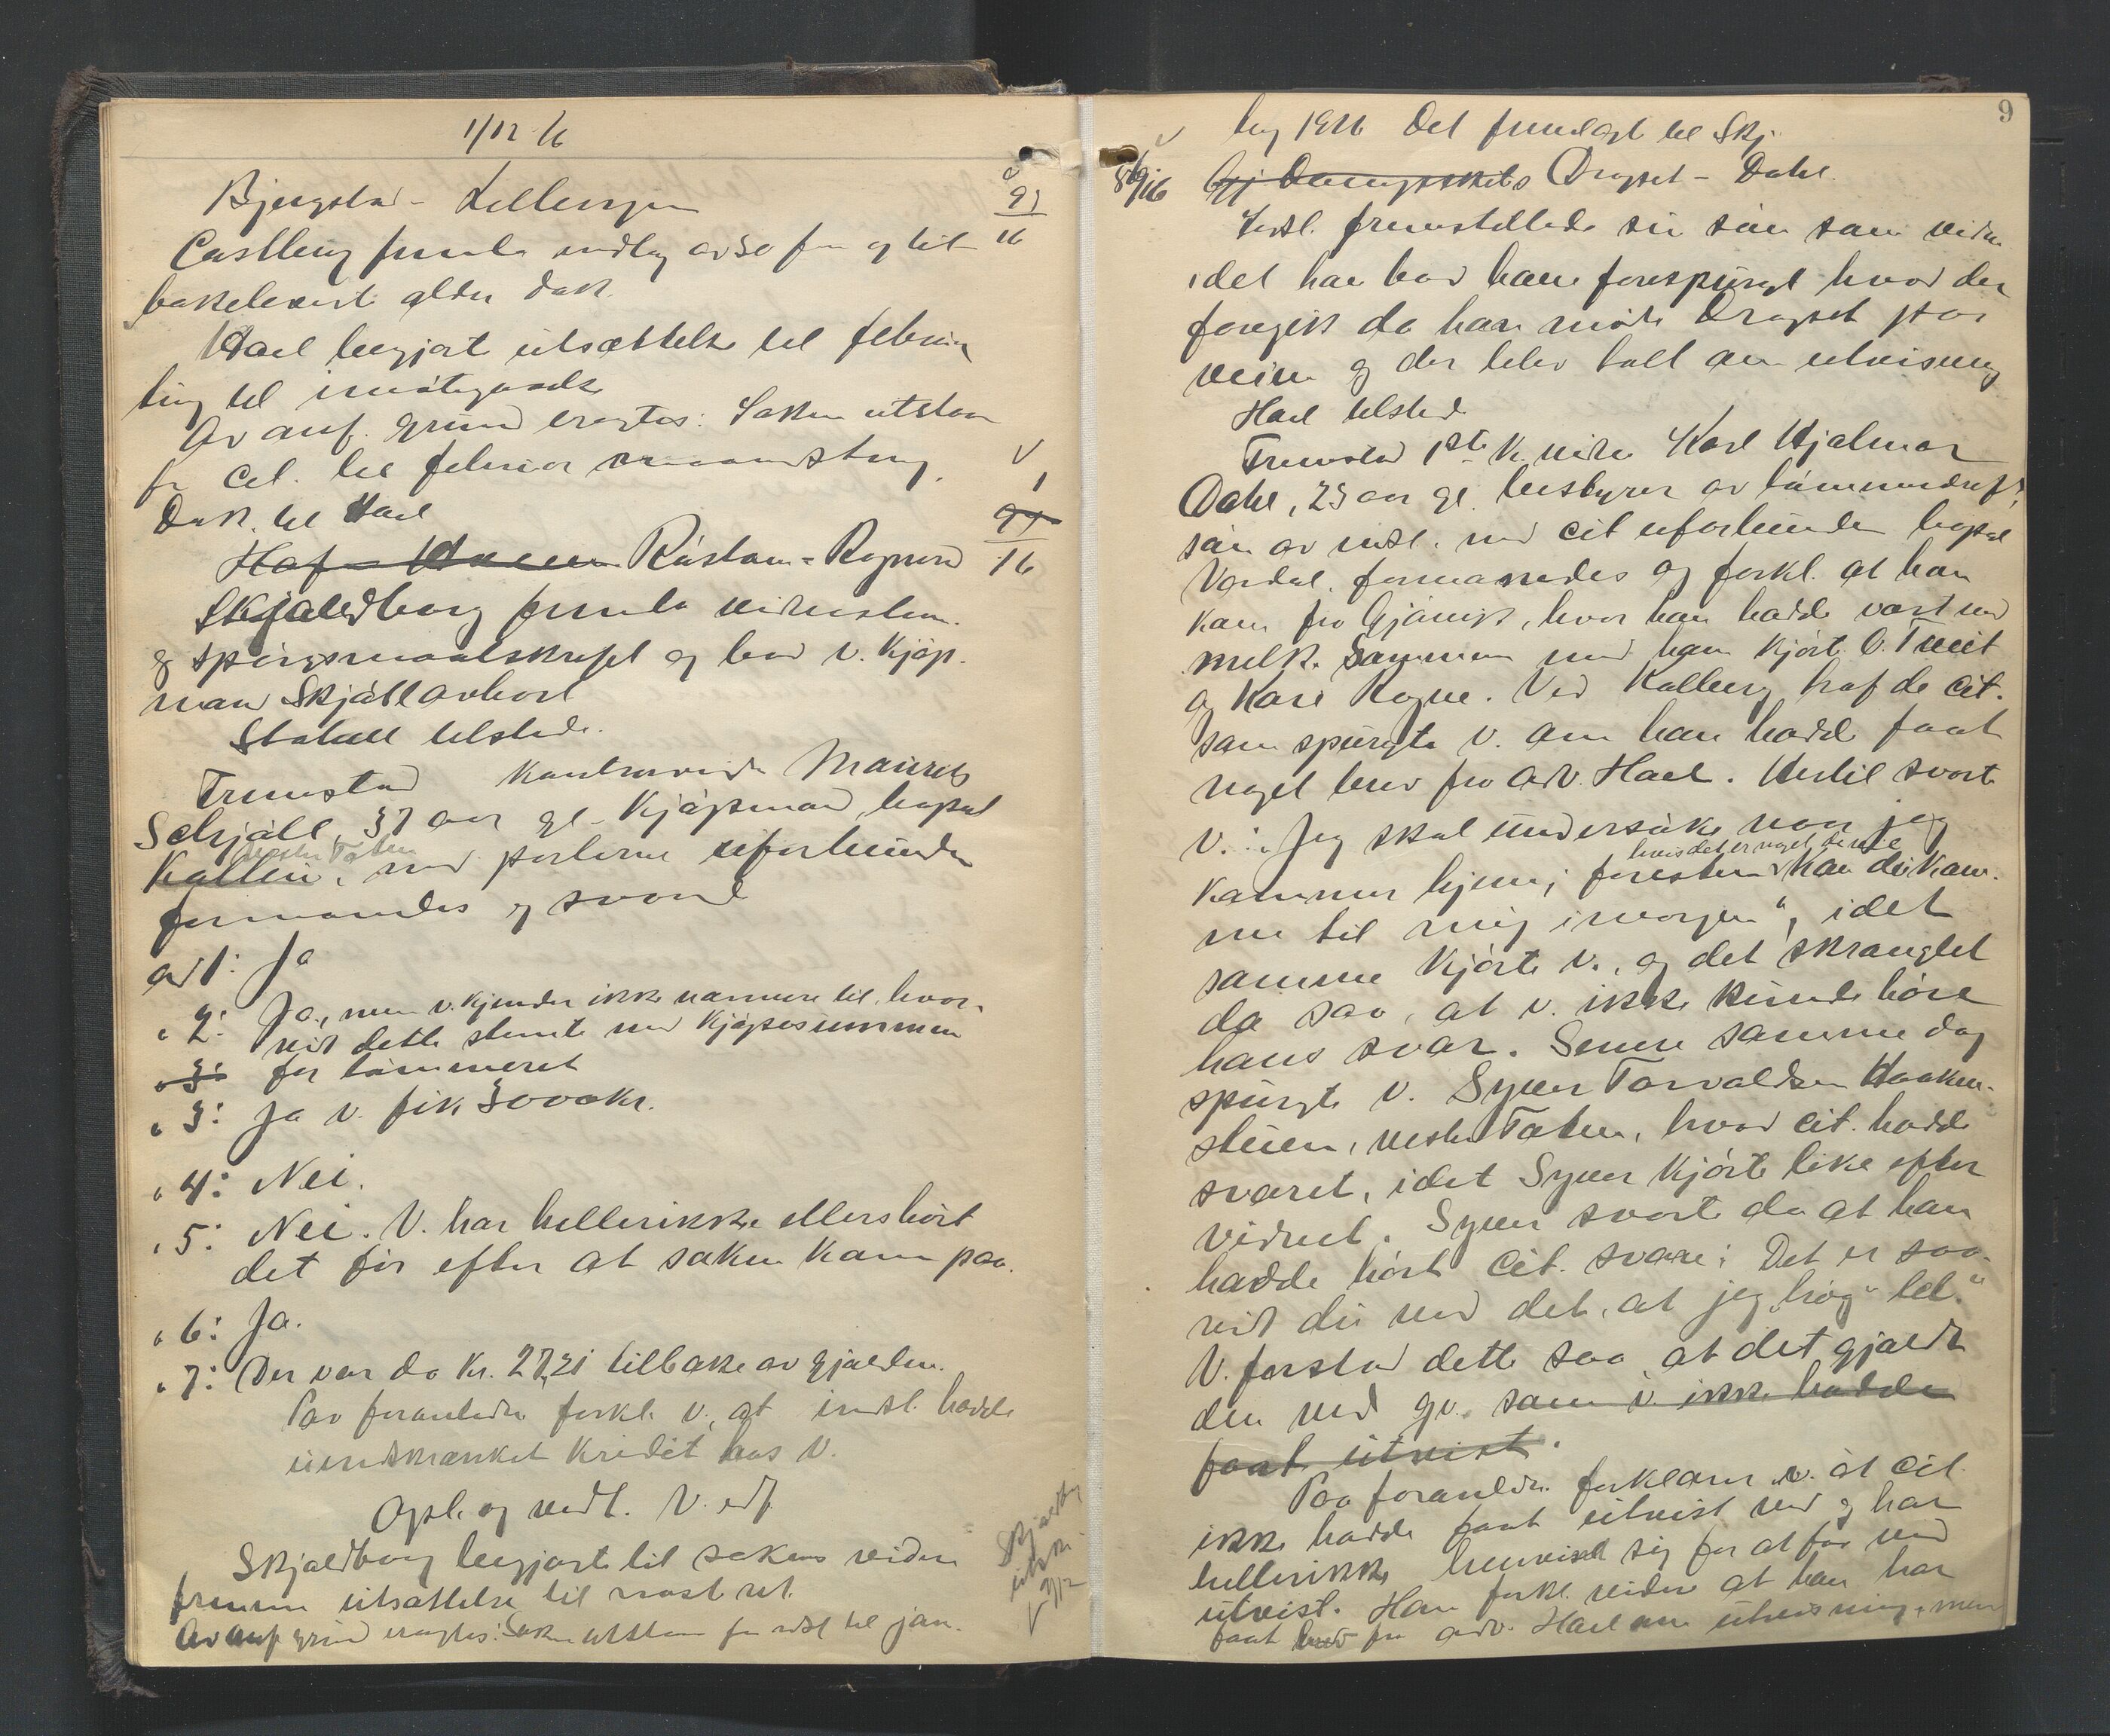 1/12 16
Bjergstad - Lillengen
Castberg fremla indlæg av 30 f.m. og til
bakeleverte aldre dok.
Hoel begjærte utsættelse til februar
ting til imøtegaaelse
Av anf. grund eragtes: Saken utstaar
fr cit. til februar maanedsting.
Dok. til Hoel
91
16
1
91
16
Røstøen - Rognerud
Skjaldborg fremla vidnestevn.
og spørgsmaalskrift og bad v. kjøp-
mand Skjøll avhørt
tilstede.
Fremstod kontravidne Maurits
Schjøll, 37 aar gl. kjøpmand, bopæl
Kolbu, med parterne uforbunden
Vestre Toten
formanedes og svarte
ad 1: Ja
" 2: Ja, men v. kjender ikke nærmere til, hvor-
vidt dette stemte med kjøpesummen
" 3: for tømmeret
" 3: Ja v. fik 3000 kr.
" 4: Nei.
" 5: Nei. V. har hellerikke ellers hørt
det før efter at saken kom paa.
" 6: Ja.
" 7: Der var da kr. 27,21 tilbake av gjælden.
Paa foranledn. forkl. v., at indst. hadde
uindskrænket kredit hos v.
Opl. og vedt. V. edf.
Skjaldborg begjærte til sakens videre
fremme utsættelse til næste ret.
Av anf. grund eragtes: Saken utstaar fr indst til jan.
Skjaldborg
utskr.
9/12
V
9
ting 1916 Det fremlagt til Skj.
56/16 Dragset - Dahl.
Indst. fremstillede sin søn som vidne
idet han bad ham forespurgt hvad der
foregik da han møtte Dragset paa
veien og der blev talt om utvisning
Hoel tilstede
Fremstod 1ste k. vidne Karl Hjalmar
Dahl, 23 aar gl. bestyrer av tømmerdrift,
søn av indst. med cit uforbunden bopæl
Vardal. formanedes og forkl. at han
kom fra Gjøvik, hvor han hadde været med
melk. Sammen med ham kjørte O. Tveit
og Kari Rogne. Ved Kalberg traf de cit.
som spurgte v. om han hadde faat
noget brev fra adv. Hoel. Hertil svarte
v.: "Jeg skal undersøke naar jeg
kommer hjem; forresten kan du kom-
hvis det er noget di vite
me til mig imorgen", idet
samme kjørte v., og det skranglet
da saa, at v. ikke kunde høre
hans svar. Senere samme dag
spurgte v. Syver Torvaldsen Haaken-
stuen, vestre Toten, hvad cit. hadde
svaret, idet Syver kjørte like efter
vidnet. Syver svarte da at han
hadde hørt cit. svare: "Det er saa-
vidt du ved det, at jeg "høg" tel."
V. forstod dette saa, at det gjaldt
den ved gv. som v. ikke hadde
faat utvist.
Paa foranledn. forklarer v. at cit
ikke hadde faat utvist ved og har
hellerikke henvist sig for at faa ved
utvist. Han forkl. videre at han har
faat brev fra adv. Hoel om utvisning, men